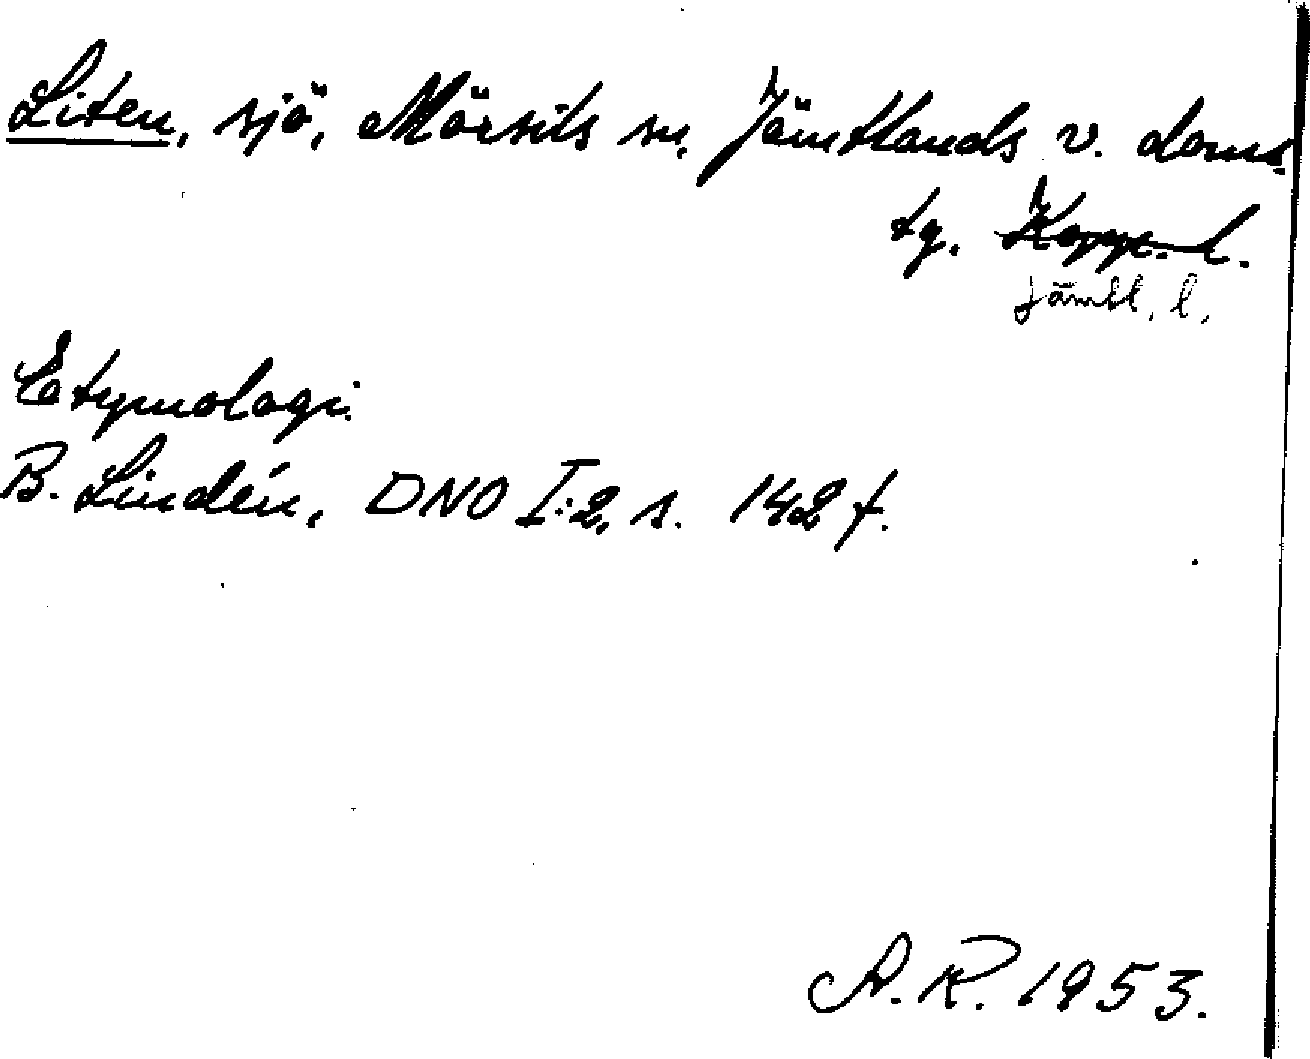 Liten, sjö, Mörsils sn, Jämtlands v. doms.
tg. Kopp. l.
Jämtl. l.
Etymologi.
B. Lindén, DNO I:2, s. 142 f.
A. R. 1953.